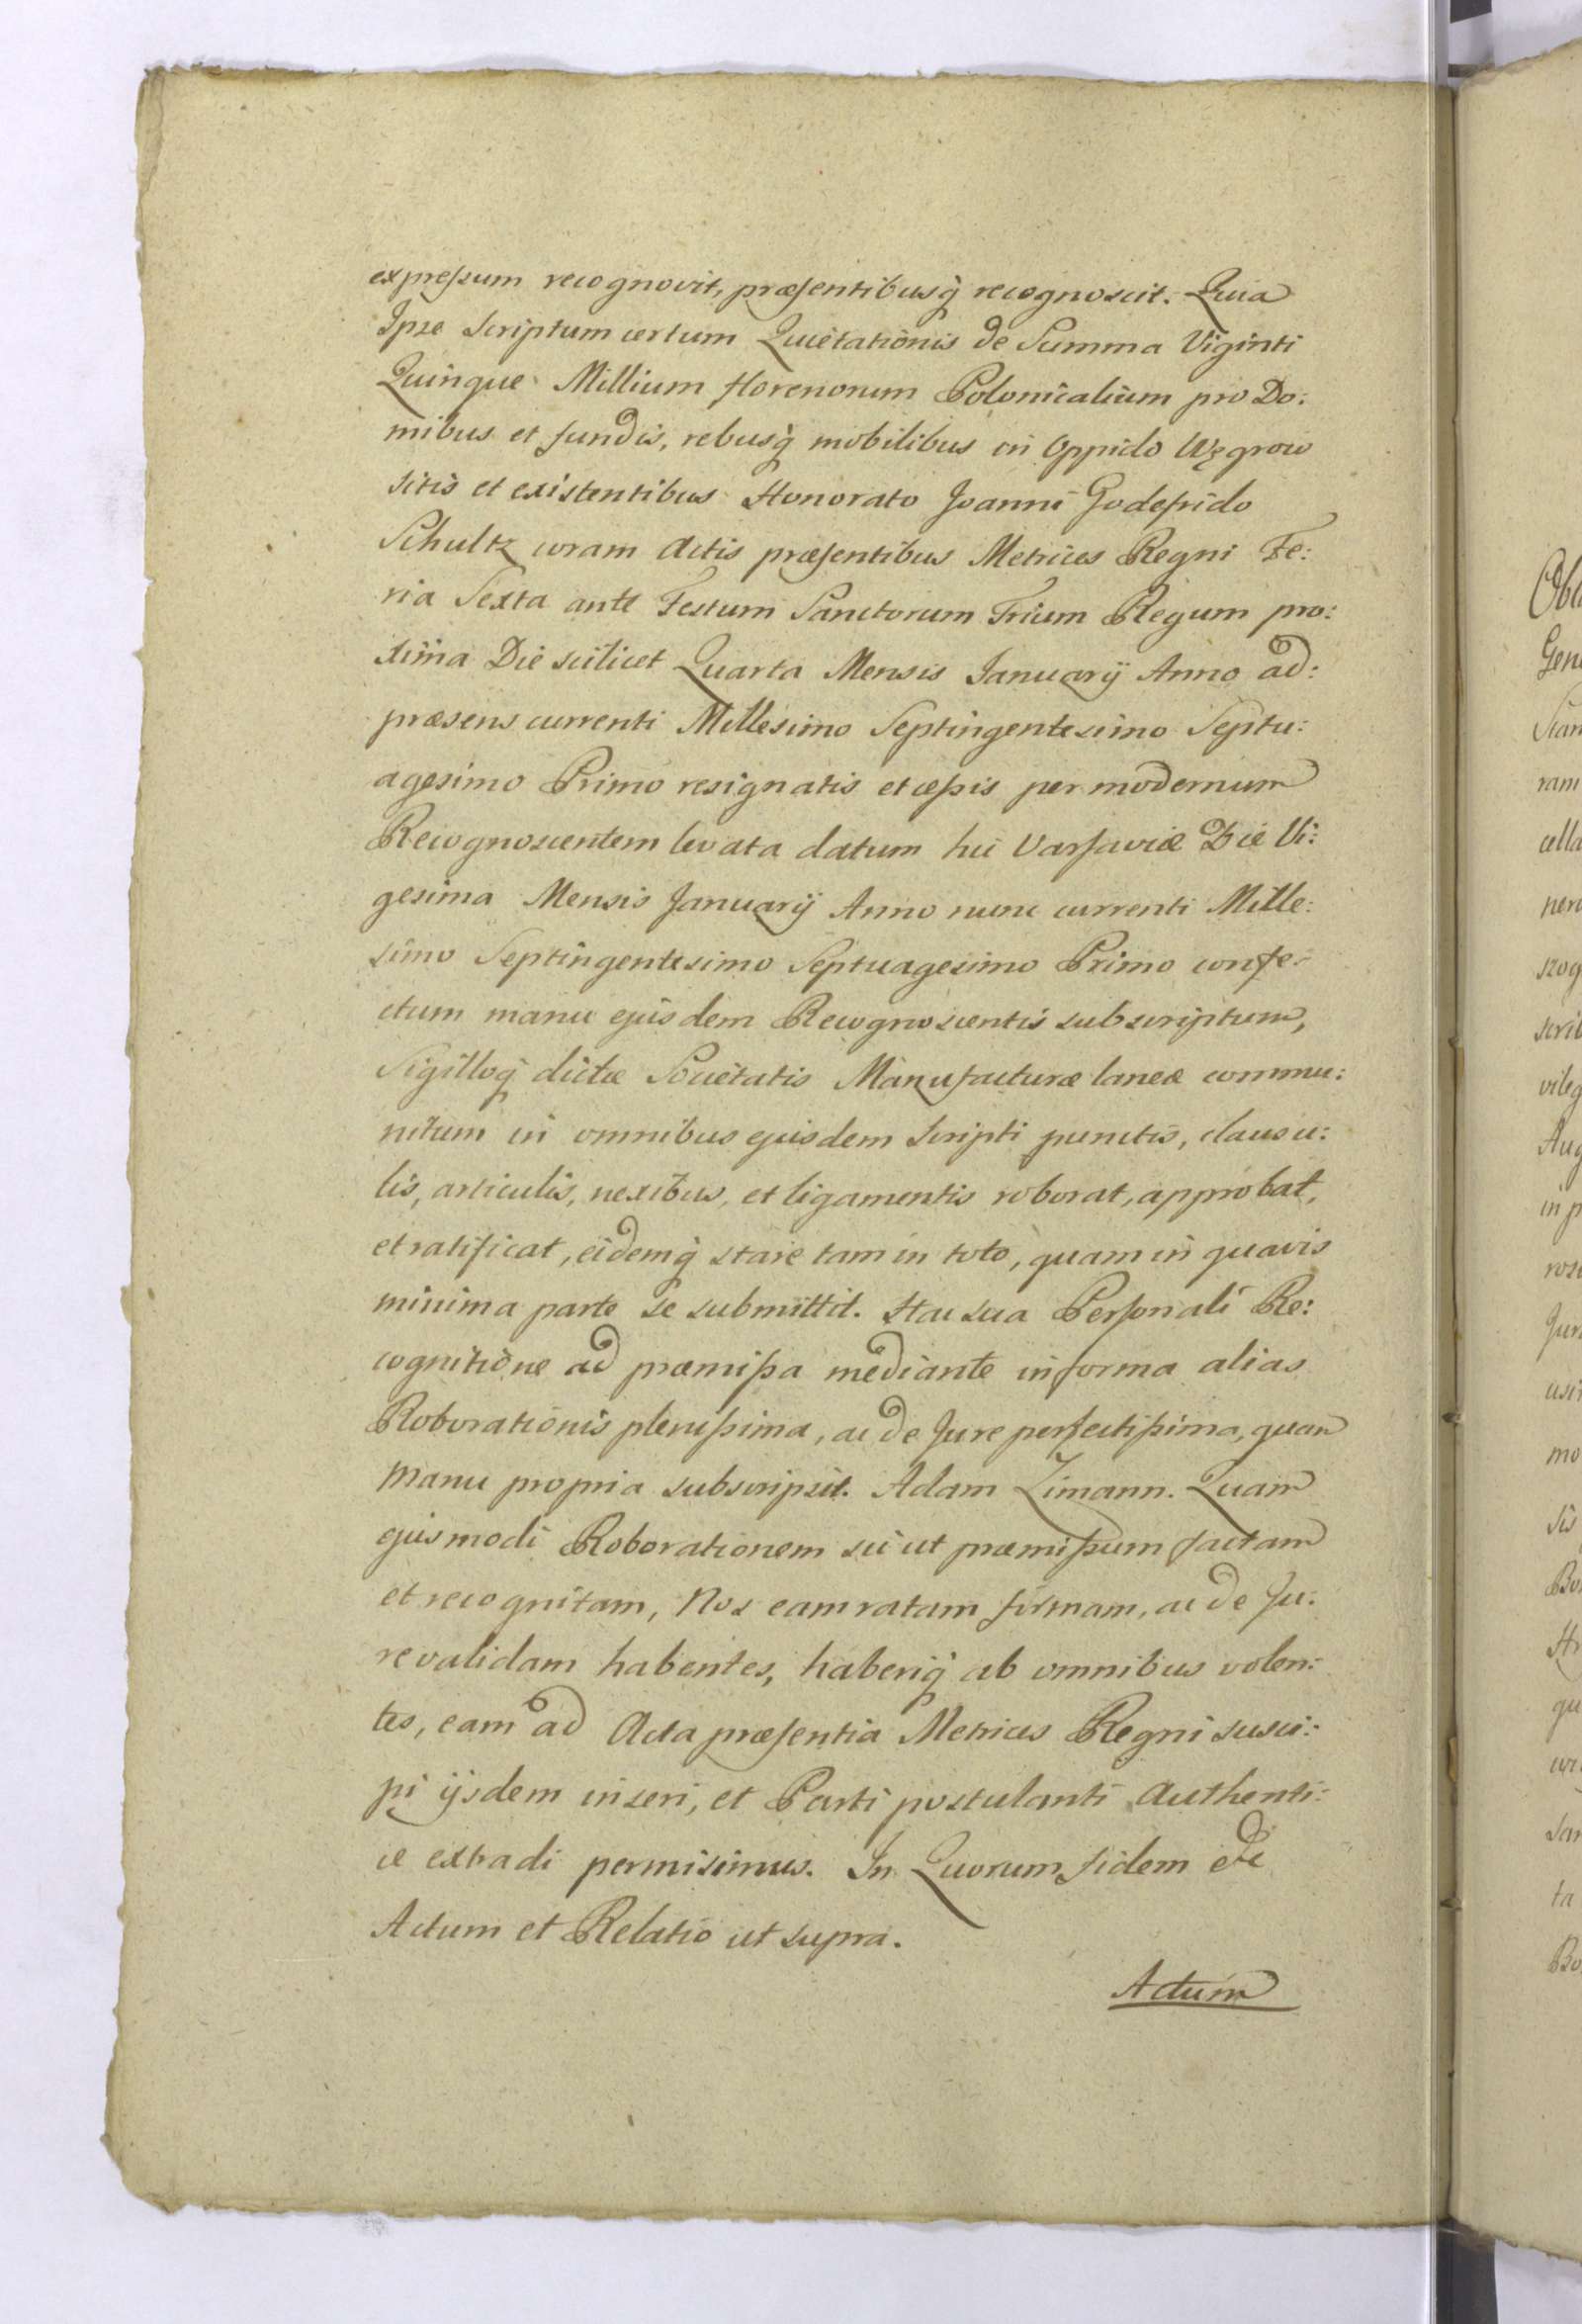 expressum recognovit, præsentibusq̀ recognoscit. Quia
Ipse Scriptum certum Quietationis de Summa Viginti
Quinque Millium florenorum Polonicalium pro Do:
mibus et fundis, rebusq̀ mobilibus in Oppido Węgrow
sitis et existentibus Honorato Joanni Godefrido
Schultz coram Actis præsentibus Metrices Regni Fe:
ria Sexta ante Festum Sanctorum Trium Regum pro:
xima Die scilicet Quarta Mensis Januarij Anno ad:
præsens currenti Millesimo Septingentesimo Septu:
agesimo Primo resignatis et cessis per modernum
Recognoscentem levata datum hic Varsaviæ Die Vi:
gesima Mensis Januarij Anno nunc currenti Mille:
simo Septingentesimo Septuagesimo Primo confe:
ctum manu ejusdem Recognoscentis subscriptum,
Sigilloq̀ dictæ Societatis Manufacturæ laneæ commu:
nitum in omnibus ejusdem Scripti punctis, clausu:
lis, articulis, nexibus, et ligamentis roborat, approbat,
et ratificat, eidemq̀ stare tam in toto, quam in quavis
minima parte se submittit. Hac sua Personali Re:
cognitione ad præmissa mediante in forma alias
Roborationis plenissima, ac de Jure perfectissima, quam
manu propria subscripsit. Adam Zimann. Quam
ejusmodi Roborationem sic ut præmissum factam
et recognitam, Nos eam ratam firmam, ac de Ju:
re validam habentes, haberiq̀ ab omnibus volen:
tes, eam ad Acta præsentia Metrices Regni susci:
pi ijsdem inseri, et Parti postulanti Authenti:
ce extradi permisimus. In Quorum fidem etc
Actum et Relatio ut supra.
Actum